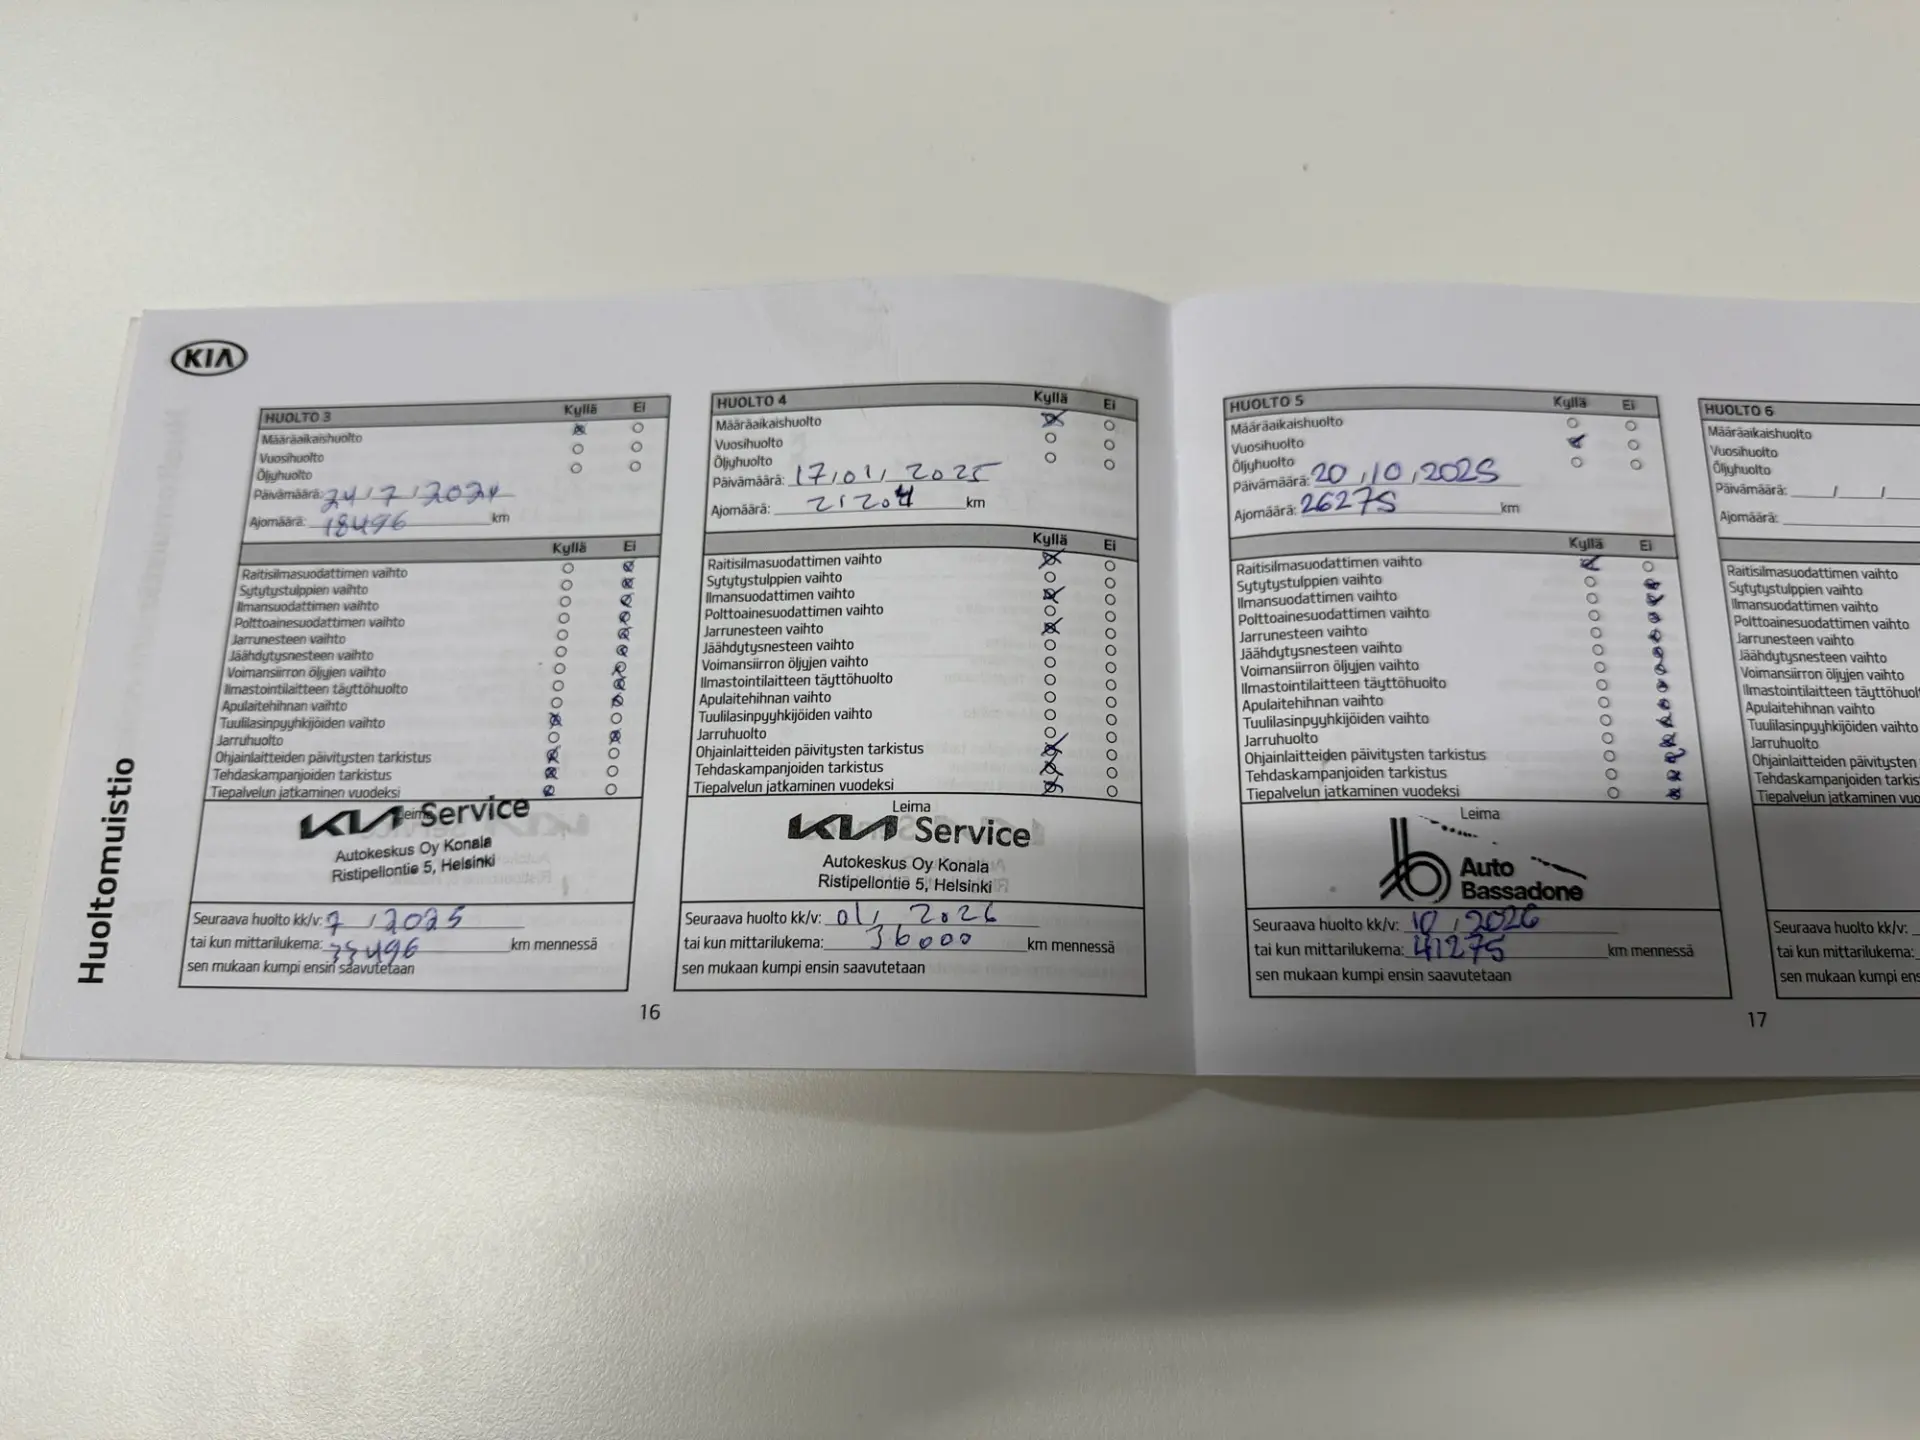 KIA
Huoltomuistio
HUOLTO 3 Kyllä Ei
Määräaikaishuolto
Vuosihuolto
Öljyhuolto
Päivämäärä: 24 / 7 / 2024
Ajomäärä: 18496 km
Kyllä Ei
Raitisilmasuodattimen vaihto
Sytytystulppien vaihto
Ilmansuodattimen vaihto
Polttoainesuodattimen vaihto
Jarrunesteen vaihto
Jäähdytysnesteen vaihto
Voimansiirron öljyjen vaihto
Ilmastointilaitteen täyttöhuolto
Apulaitehihnan vaihto
Tuulilasinpyyhkijöiden vaihto
Jarruhuolto
Ohjainlaitteiden päivitysten tarkistus
Tehdaskampanjoiden tarkistus
Tiepalvelun jatkaminen vuodeksi
Leima
KIA Service
Autokeskus Oy Konala
Ristipellontie 5, Helsinki
Seuraava huolto kk/v: 7 / 2025
tai kun mittarilukema: 33496 km mennessä
sen mukaan kumpi ensin saavutetaan
HUOLTO 4 Kyllä Ei
Määräaikaishuolto
Vuosihuolto
Öljyhuolto
Päivämäärä: 17 / 01 / 2025
Ajomäärä: 21204 km
Kyllä Ei
Raitisilmasuodattimen vaihto
Sytytystulppien vaihto
Ilmansuodattimen vaihto
Polttoainesuodattimen vaihto
Jarrunesteen vaihto
Jäähdytysnesteen vaihto
Voimansiirron öljyjen vaihto
Ilmastointilaitteen täyttöhuolto
Apulaitehihnan vaihto
Tuulilasinpyyhkijöiden vaihto
Jarruhuolto
Ohjainlaitteiden päivitysten tarkistus
Tehdaskampanjoiden tarkistus
Tiepalvelun jatkaminen vuodeksi
Leima
KIA Service
Autokeskus Oy Konala
Ristipellontie 5, Helsinki
Seuraava huolto kk/v: 01 / 2026
tai kun mittarilukema: 36000 km mennessä
sen mukaan kumpi ensin saavutetaan
16
HUOLTO 5 Kyllä Ei
Määräaikaishuolto
Vuosihuolto
Öljyhuolto
Päivämäärä: 20 / 10 / 2025
Ajomäärä: 26275 km
Kyllä Ei
Raitisilmasuodattimen vaihto
Sytytystulppien vaihto
Ilmansuodattimen vaihto
Polttoainesuodattimen vaihto
Jarrunesteen vaihto
Jäähdytysnesteen vaihto
Voimansiirron öljyjen vaihto
Ilmastointilaitteen täyttöhuolto
Apulaitehihnan vaihto
Tuulilasinpyyhkijöiden vaihto
Jarruhuolto
Ohjainlaitteiden päivitysten tarkistus
Tehdaskampanjoiden tarkistus
Tiepalvelun jatkaminen vuodeksi
Leima
Auto
Bassadone
Seuraava huolto kk/v: 10 / 2026
tai kun mittarilukema: 41275 km mennessä
sen mukaan kumpi ensin saavutetaan
HUOLTO 6
Määräaikaishuolto
Vuosihuolto
Öljyhuolto
Päivämäärä: / /
Ajomäärä:
Raitisilmasuodattimen vaihto
Sytytystulppien vaihto
Ilmansuodattimen vaihto
Polttoainesuodattimen vaihto
Jarrunesteen vaihto
Jäähdytysnesteen vaihto
Voimansiirron öljyjen vaihto
Ilmastointilaitteen
Apulaitehihnan vaihto
Tuulilasinpyyhkijöiden vaihto
Jarruhuolto
Ohjainlaitteiden päivitysten
Tehdaskampanjoiden
Tiepalvelun jatkaminen
Seuraava huolto kk/v:
tai kun mittarilukema:
sen mukaan kumpi
17